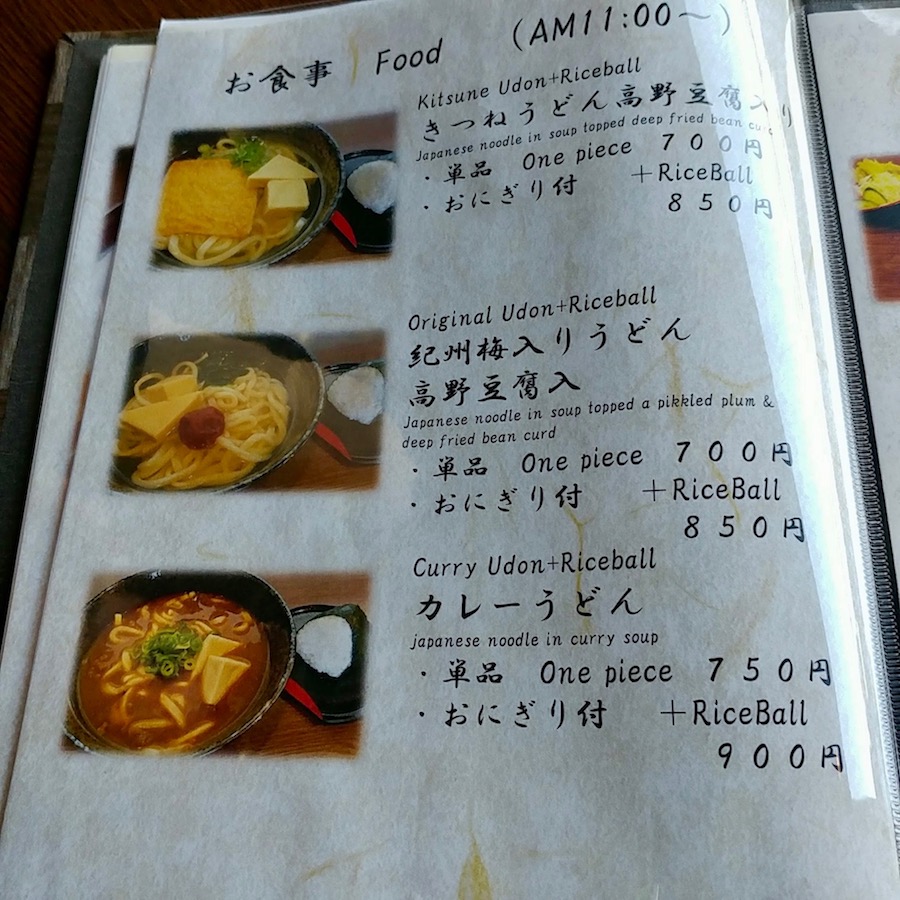 お食事 Food （AM11:00～）
Kitsune Udon+Riceball
きつねうどん高野豆腐入り
Japanese noodle in soup topped deep fried bean curd
・単品 One piece ７００円
・おにぎり付 ＋RiceBall
８５０円
Original Udon+Riceball
紀州梅入りうどん
高野豆腐入
Japanese noodle in soup topped a pikkled plum &
deep fried bean curd
・単品 One piece ７００円
・おにぎり付 ＋RiceBall
８５０円
Curry Udon+Riceball
カレーうどん
japanese noodle in curry soup
・単品 One piece ７５０円
・おにぎり付 ＋RiceBall
９００円